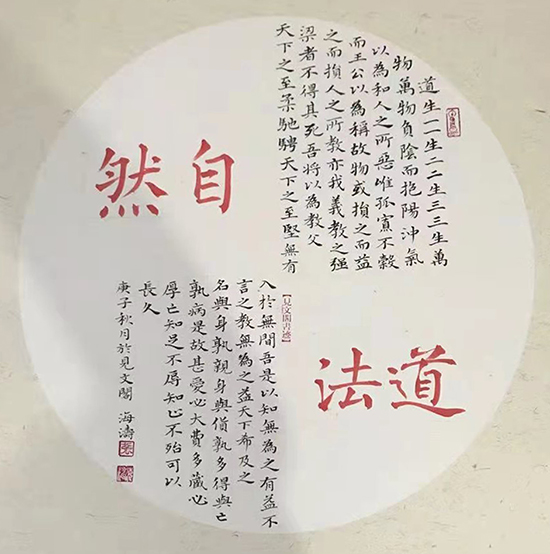 道生一一生二二生三三生萬
物萬物負陰而抱陽沖氣
以為和人之所惡唯孤寡不穀
而王公以為稱故物或損之而益
之而損人之所教亦我義教之强
梁者不得其死吾將以為教父
天下之至柔馳騁天下之至堅無有
入於無間吾是以知無為之有益不
言之教無為之益天下希及之
名與身孰親身與貨孰多得與亡
孰病是故甚愛必大費多藏必
厚亡知足不辱知止不殆可以
長久
庚子秋月於見文閣 海濤
【見文閣書迹】
道法
自然